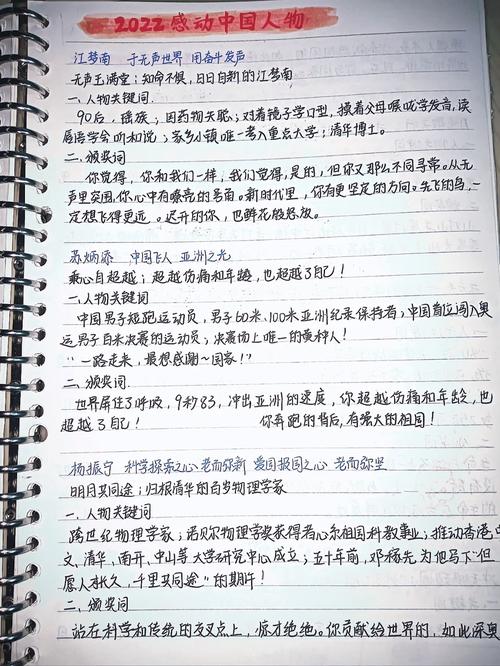 2022感动中国人物
江梦南 于无声世界 用奋斗发声
无声玉满堂：知命不惧，日日自新的江梦南
一、人物关键词.
90后，瑶族；因药物失聪；对着镜子学口型，摸着父母喉咙学发音，读
唇语学会听和说；家乡小镇唯一考入重点大学；清华博士。
二.颁奖词
你觉得，你和我们一样，我们觉得，是的，但你又那么不同寻常。从无
声里突围，你心中有嘹亮的号角。新时代里，你有更坚定的方向。先飞的鸟，一
定想飞得更远。迟开的你，也鲜花般怒放。
苏炳添 中国飞人 亚洲之光
乘心自超越：超越伤痛和年龄，也超越了自己！
一.人物关键词
中国男子短跑运动员，男子60米、100米亚洲纪录保持者；中国首位闯入奥
运男子百米决赛的运动员；决赛场上唯一的黄种人！
“一路走来，最想感谢~国家！”
二、颁奖词.
世界屏住了呼吸，9秒83，冲出亚洲的速度，你超越伤痛和年龄，也
超越了自己！ 你奔跑的背后，有强大的祖国！
杨振宁 科学探索之心 老而弥新 爱国报国之心 老而弥坚
明月共同途：归根清华的百岁物理学家
一.人物关键词
跨世纪物理学家；诺贝尔物理学奖获得者心系祖国科教事业；推动香港中
文、清华、南开、中山等大学研究中心成立；五十年前，邓稼先为他写下“但
愿人长久，千里共同途”的期许！
二、颁奖词
站在科学和传统的交叉点上，惊才绝艳。你贡献给世界的，如此深奥